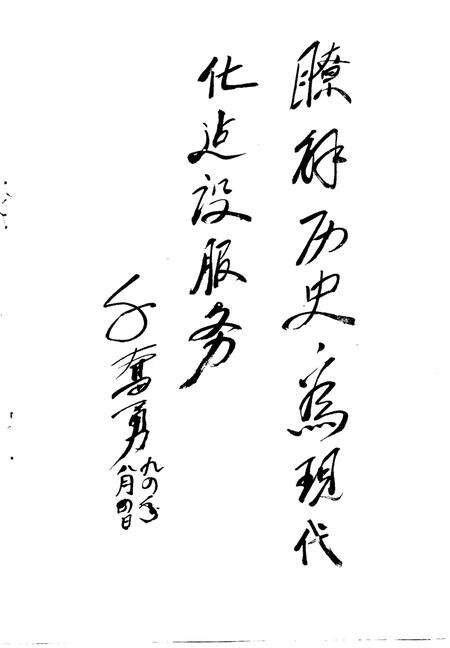 瞭解历史，為現代
化建设服务
奮勇
九〇年
八月四日